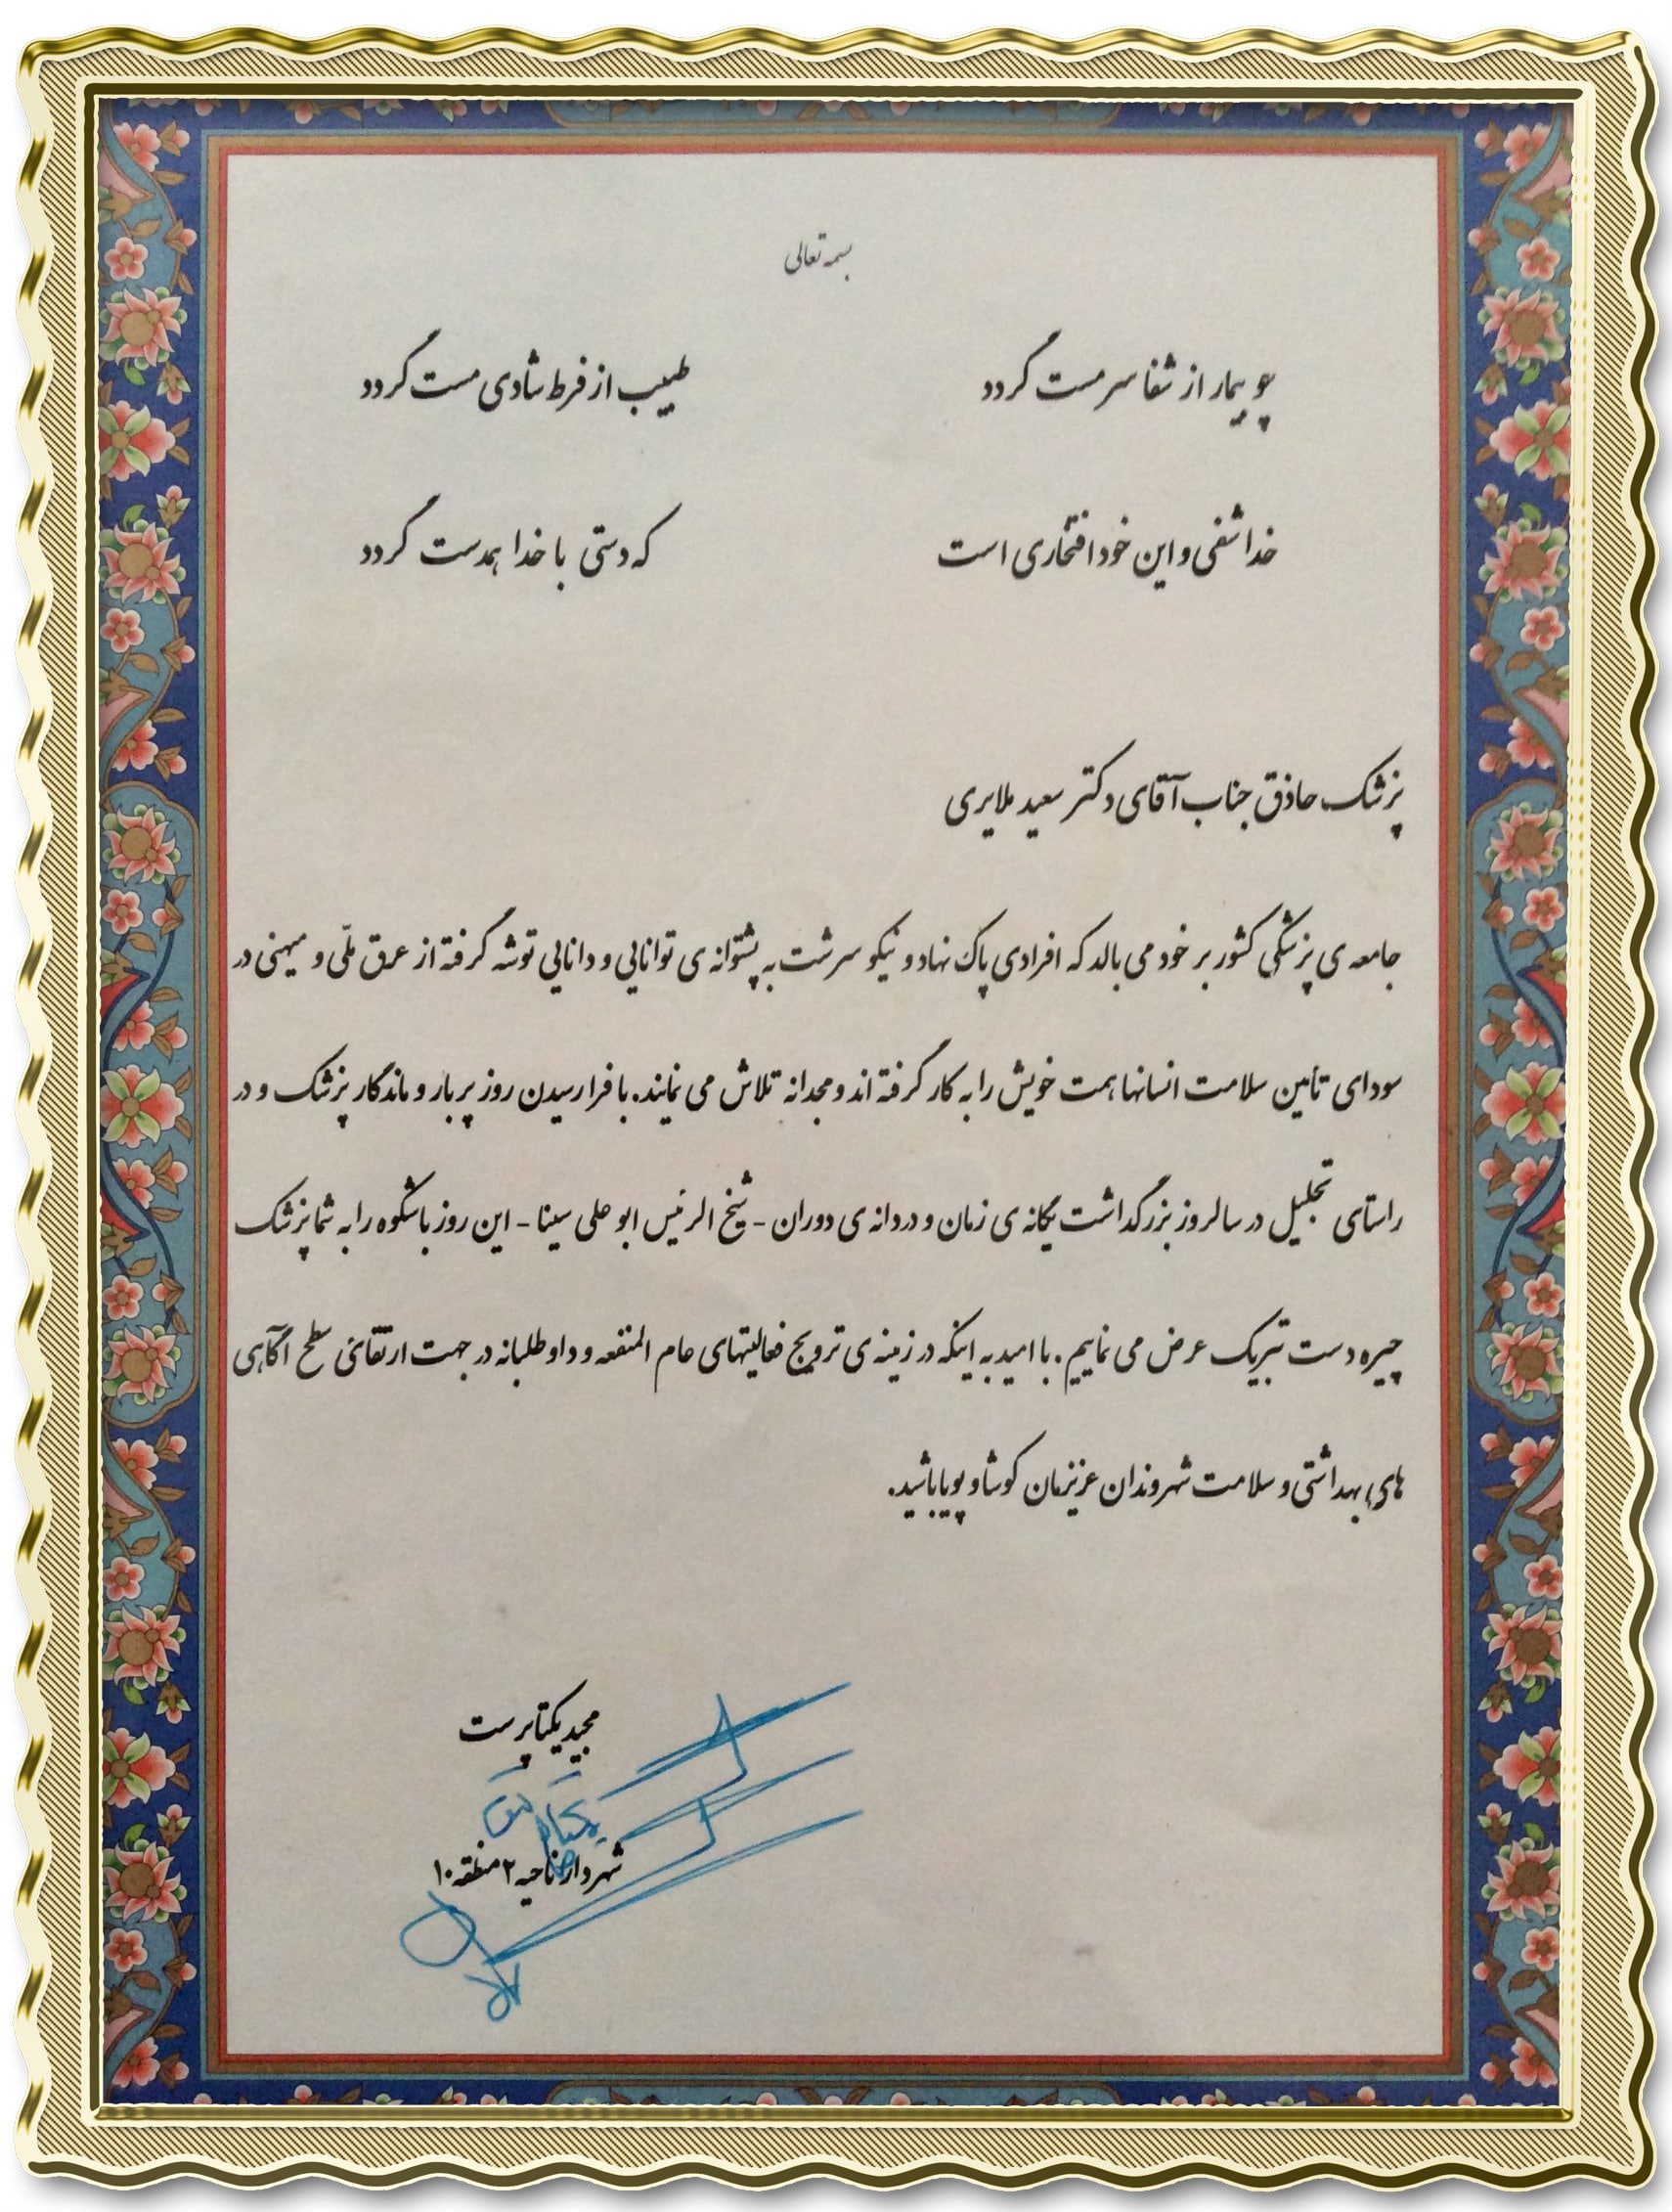 بسمه تعالی
چو بیمار از شفا سرمست گردد طبیب از فرط شادی مست گردد
خدا شفی و این خود افتخاری است که دستی با خدا همدست گردد
پزشک حاذق جناب آقای دکتر سعید ملایری
جامعه ی پزشکی کشور بر خود می بالد که افرادی پاک نهاد و نیکو سرشت به پشتوانه ی توانایی و دانایی توشه گرفته از عرق ملّی و میهنی در
سودای تأمین سلامت انسانها همت خویش را به کار گرفته اند و مجدانه تلاش می نمایند. با فرا رسیدن روز پر بار و ماندگار پزشک و در
راستای تجلیل در سالروز بزرگداشت یگانه ی زمان و دردانه ی دوران - شیخ الرئیس ابو علی سینا - این روز باشکوه را به شما پزشک
چیره دست تبریک عرض می نماییم. با امید به اینکه در زمینه ی ترویج فعالیتهای عام المنفعه و داوطلبانه در جهت ارتقائ سطح آگاهی
های بهداشتی و سلامت شهروندان عزیزمان کوشا و پویا باشید.
مجید یکتاپرست
شهردار ناحیه ۲ منطقه ۱۰